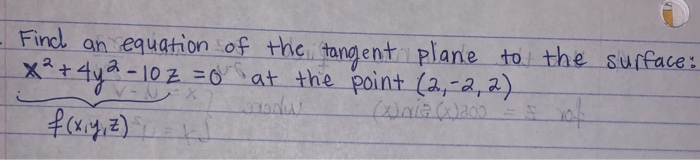 Find an equation of the tangent plane to the surface:
x² + 4y² - 10z = 0 at the point (2,-2,2)
f(x,y,z)